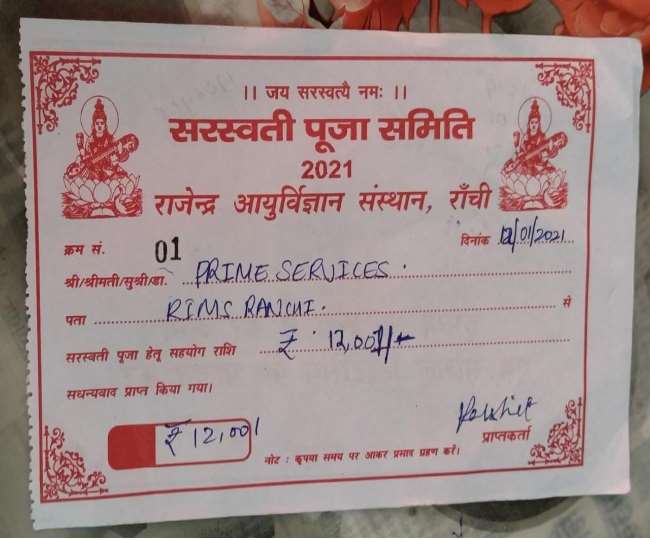 ।। जय सरस्वत्यै नमः ।।
सरस्वती पूजा समिति
2021
राजेन्द्र आयुर्विज्ञान संस्थान, राँची
क्रम सं. 01 दिनांक 12/01/2021
श्री/श्रीमती/सुश्री/डा. PRIME SERVICES.
पता RIMS RANCHI. से
सरस्वती पूजा हेतू सहयोग राशि ₹ 12,001/-
सधन्यवाद प्राप्त किया गया।
₹ 12,001
प्राप्तकर्ता
नोट : कृपया समय पर आकर प्रसाद ग्रहण करें।